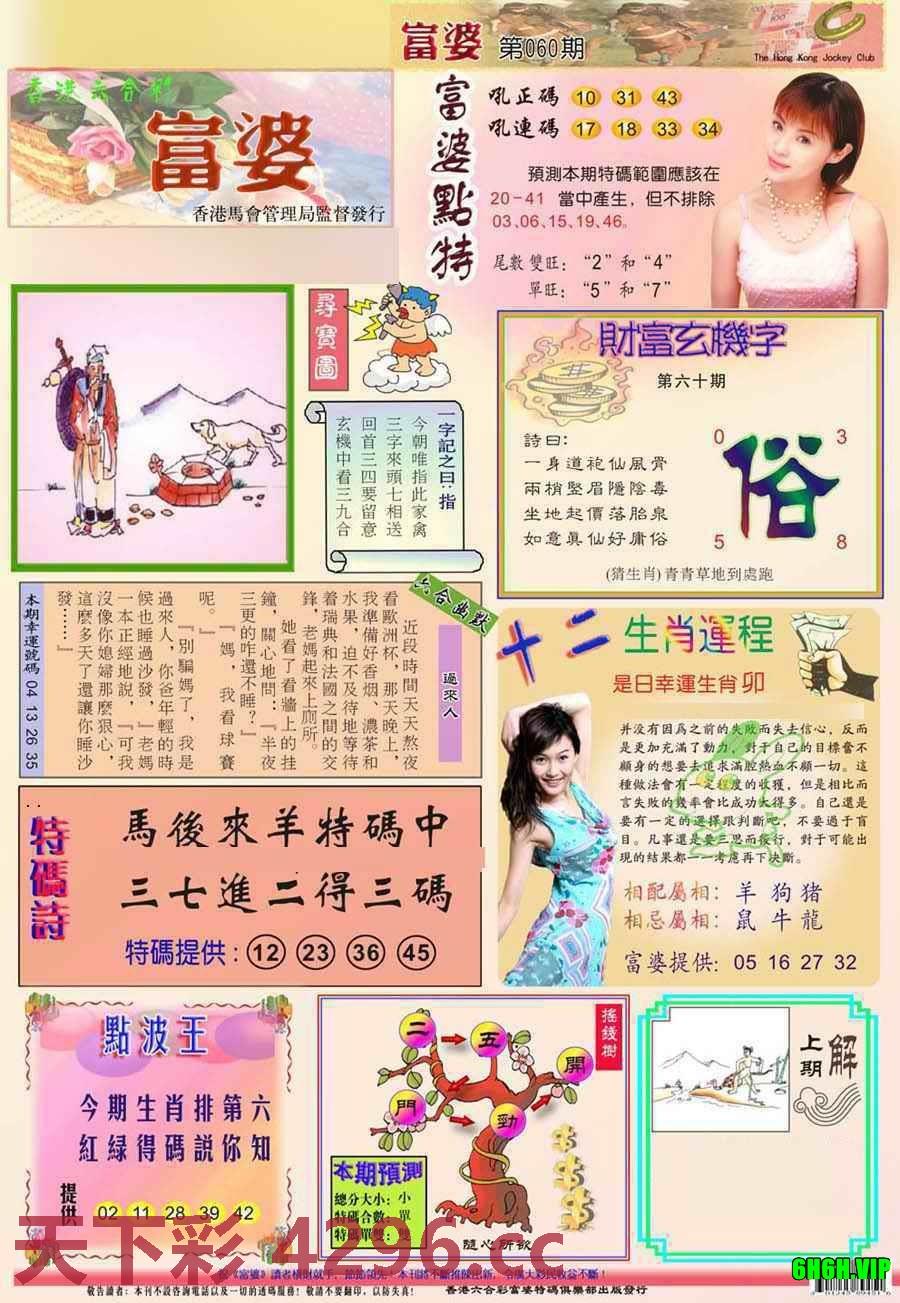 富婆 第060期
The Hong Kong Jockey Club
香港六合彩
富婆
香港馬會管理局監督發行
富婆點特
吼正碼 10 31 43
吼連碼 17 18 33 34
預測本期特碼範圍應該在
20-41 當中產生，但不排除
03、06、15、19、46。
尾數雙旺：“2”和“4”
單旺：“5”和“7”
尋寶圖
一字記之曰：指
今朝唯指此家禽
三字來頭七相送
回首三四要留意
玄機中看三九合
財富玄機字
第六十期
詩曰：
一身道袍仙風骨
兩梢堅眉隱陰毒
坐地起價落胎泉
如意真仙好庸俗
0 3
俗
5 8
(猜生肖)青青草地到處跑
六合幽默
過來人
近段時間天天熬夜
看歐洲杯，那天晚上，
我準備好香烟、濃茶和
水果，迫不及待地等待
着瑞典和法國之間的交
鋒，老媽起來上廁所。
她看了看牆上的挂
鐘，關心地問：『半夜
三更的咋還不睡？』
『媽，我看球賽
呢。』
『別騙媽了，我是
過來人，你爸年輕的時
候也睡過沙發，』老媽
一本正經地說，『可我
沒像你媳婦那麼狠心，
這麼多天了還讓你睡沙
發……』
本期幸運號碼 04 13 26 35
十二生肖運程
是日幸運生肖卯
并没有因爲之前的失敗而失去信心，反而
是更加充滿了動力，對于自己的目標奮不
顧身的想要去追求滿腔熱血不顧一切。這
種做法會有一定程度的收獲，但是相比而
言失敗的幾率會比成功大得多。自己還是
要有一定的選擇跟判斷吧，不要過于盲
目。凡事還是要三思而後行，對于可能出
現的結果都一一考慮再下决斷。
相配屬相：羊 狗 猪
相忌屬相：鼠 牛 龍
富婆提供：05 16 27 32
特碼詩
馬後來羊特碼中
三七進二得三碼
特碼提供：12 23 36 45
點波王
今期生肖排第六
紅緑得碼説你知
提供 02 11 28 39 42
搖錢樹
二 五
開
門 勁
本期預測
總分大小：小
特碼合數：單
特碼單雙：雙
隨心所欲
上期解
天下彩 4296.cc
祝《富婆》讀者横財就手，節節領先！本刊將不斷推陳出新，令廣大彩民收益不斷！
敬告讀者：本刊不設咨詢電話以及一切的透碼服務！敬請不要翻印，以防失真！
香港六合彩富婆特碼俱樂部出版發行
6H6H.VIP